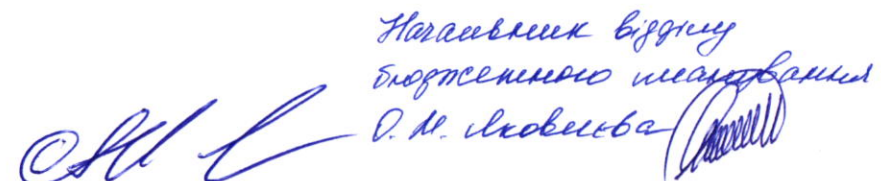 Начальник відділу
бюджетного планування
О. М. Яковлєва